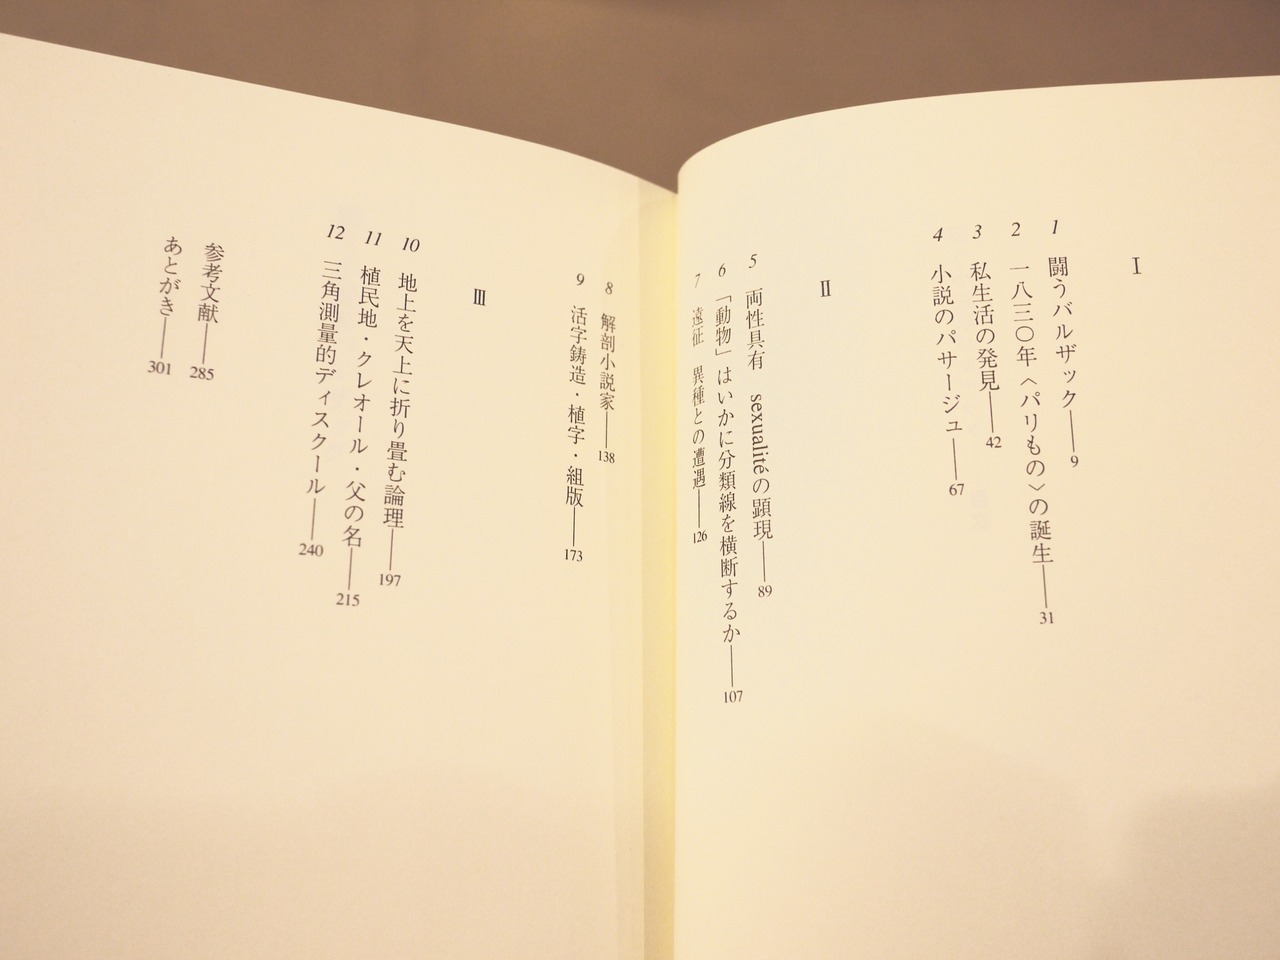 Ⅰ
1 闘うバルザック——9
2 一八三〇年〈パリもの〉の誕生——31
3 私生活の発見——42
4 小説のパサージュ——67
Ⅱ
5 両性具有 sexualitéの顕現——89
6 「動物」はいかに分類線を横断するか——107
7 遠征 異種との遭遇——126
8 解剖小説家——138
9 活字鋳造・植字・組版——173
Ⅲ
10 地上を天上に折り畳む論理——197
11 植民地・クレオール・父の名——215
12 三角測量的ディスクール——240
参考文献——285
あとがき——301